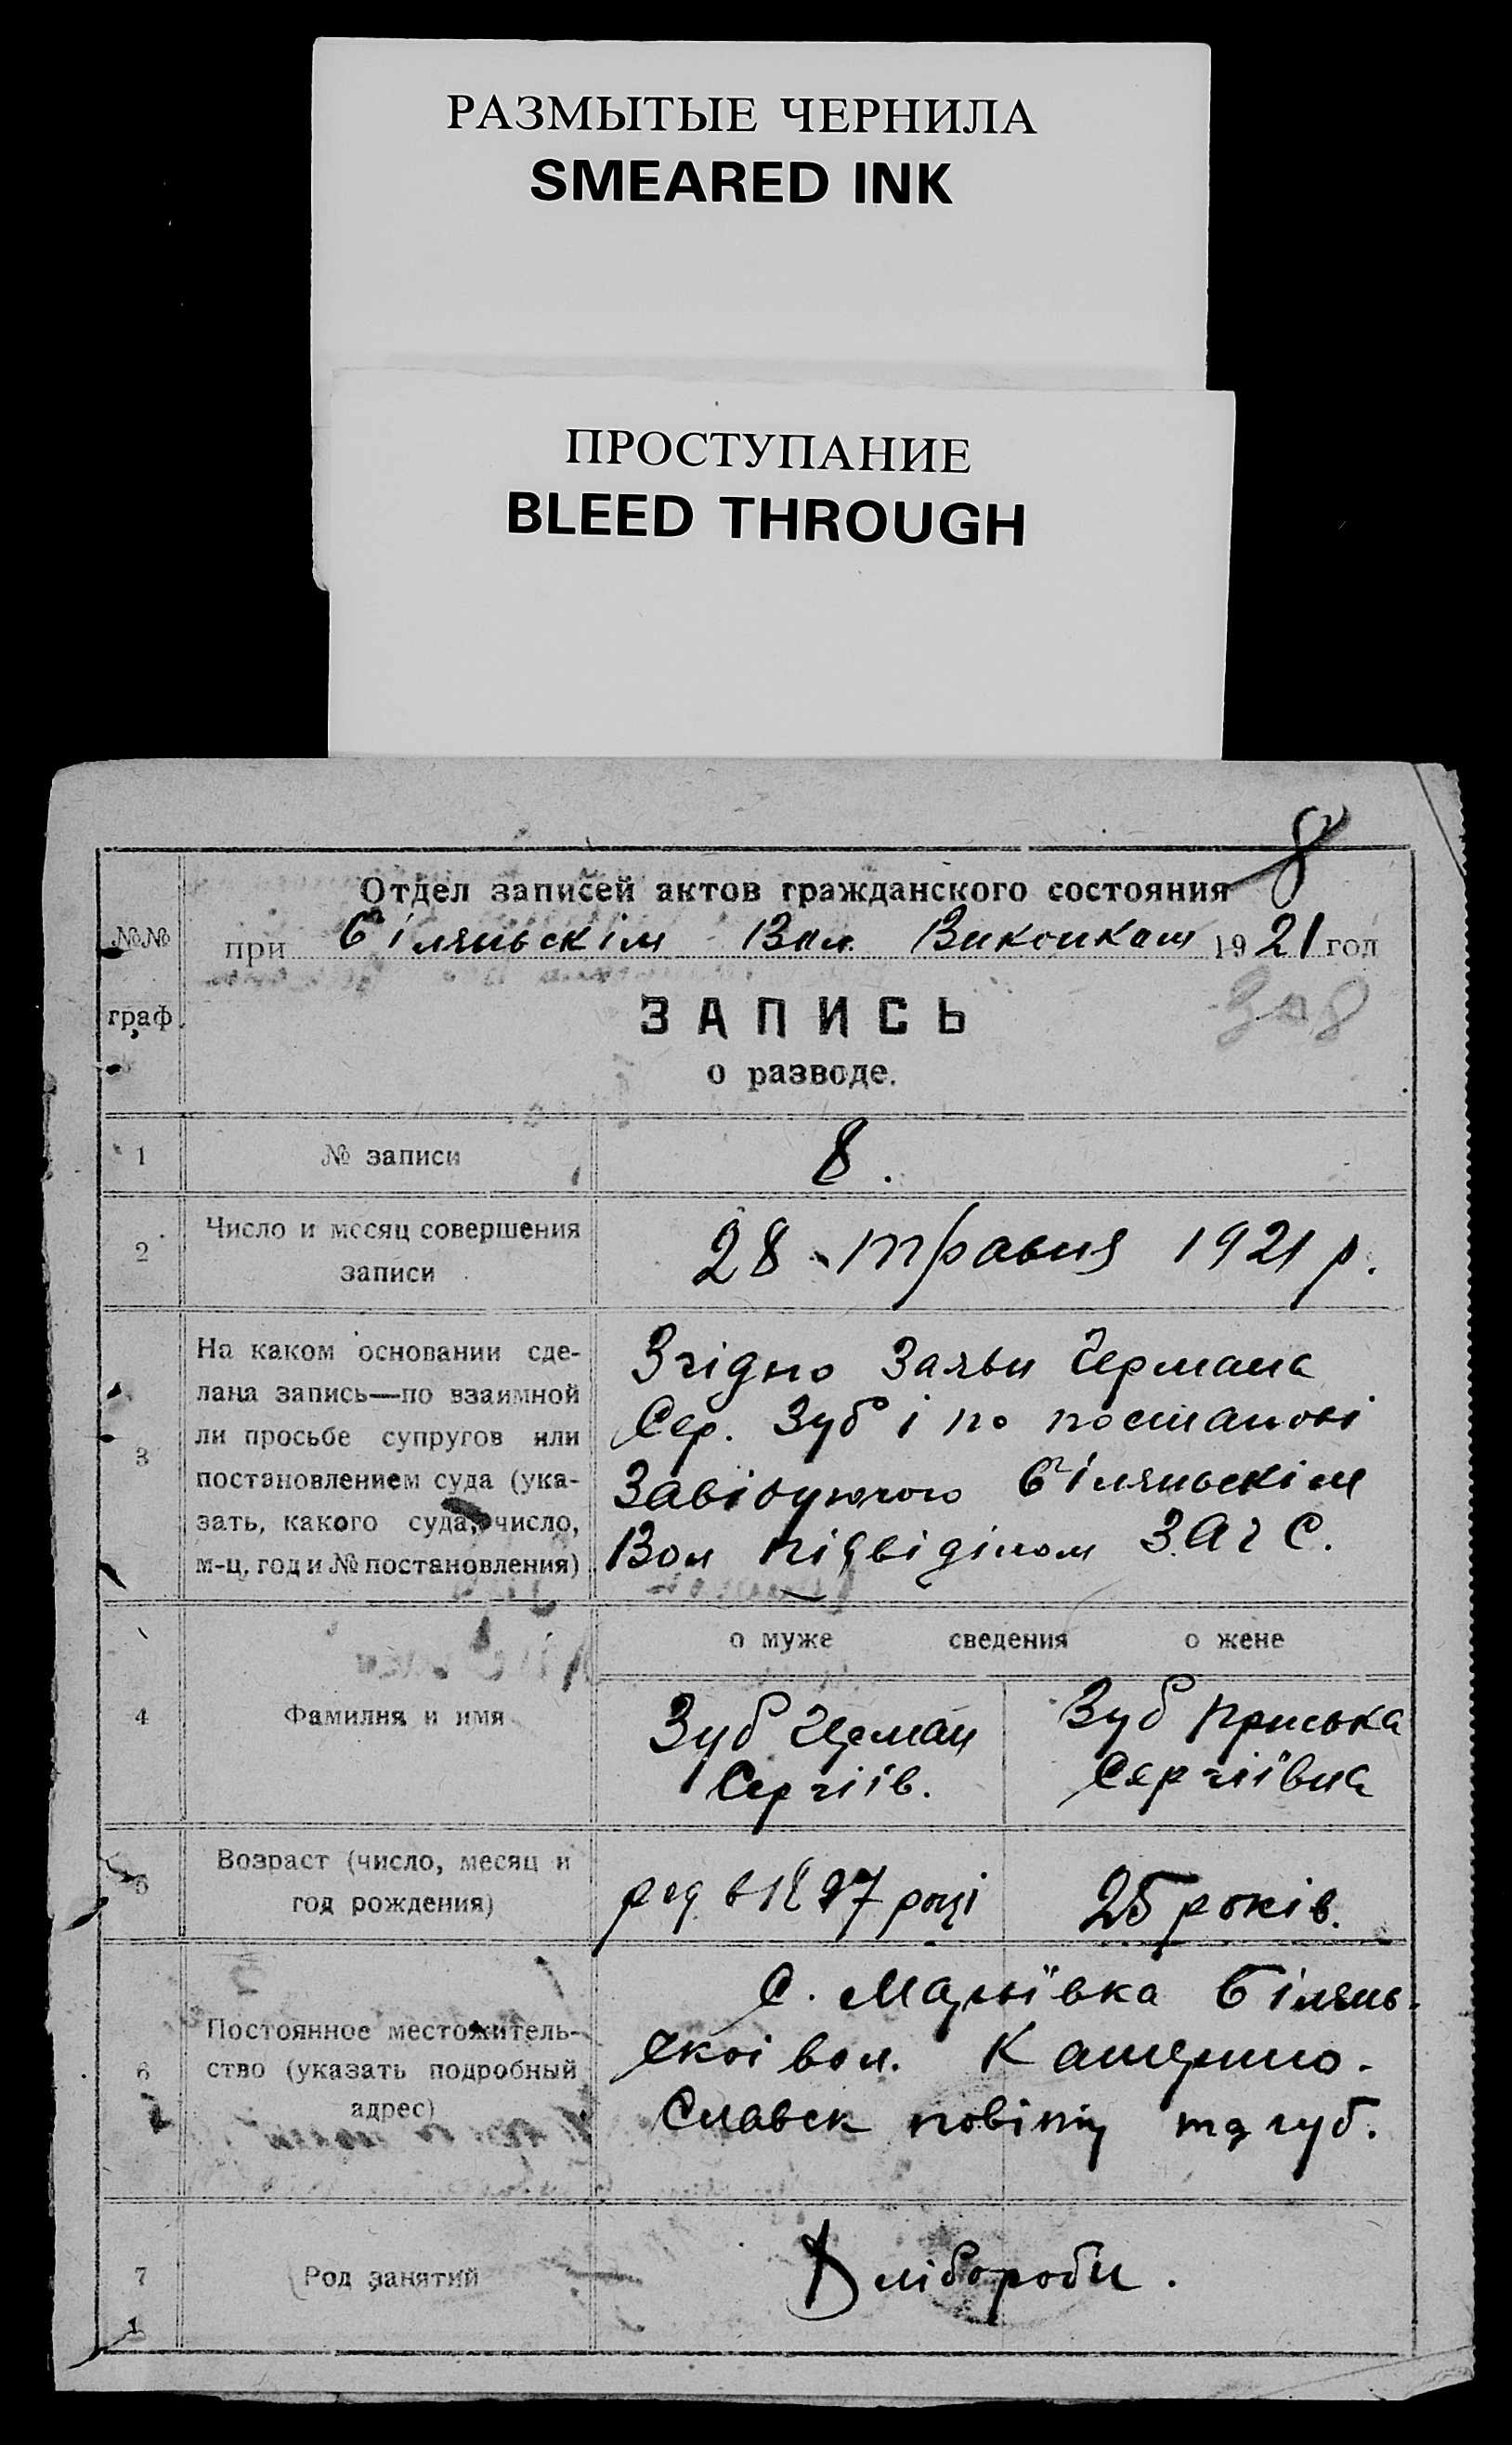 РАЗМЫТЫЕ ЧЕРНИЛА
SMEARED INK
ПРОСТУПАНИЕ
BLEED THROUGH
8
№№ граф
Отдел записей актов гражданского состояния
при Біляньскім Вол. Виконком 1921 год
ЗАПИСЬ
о разводе.
1 № записи 8.
2 Число и месяц совершения
записи
28 травня 1921 р.
3 На каком основании сде-
лана запись—по взаимной
ли просьбе супругов или
постановлением суда (ука-
зать, какого суда, число,
м-ц, год и № постановления)
Згідно Заяви Германа
Сер. Зуб і по постанові
Завідуючого Біляньскім
Вол підвіділом З.А г С.
о муже сведения о жене
4 Фамилия и имя
Зуб Герман
Сергіїв.
ЗубПриська
Сергіївна
5 Возраст (число, месяц и
год рождения)
род в 1897 році
25 років.
6 Постоянное местожитель-
ство (указать подробный
адрес)
С. Мар'ївка Білянь-
скої вол. Катерино-
Славск повіту та губ.
7 Род занятий
Хлібороби.